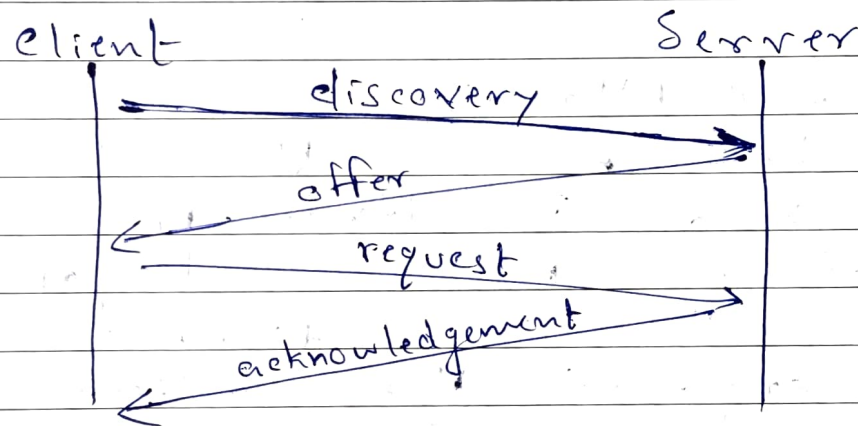 Client Server
discovery
offer
request
acknowledgement